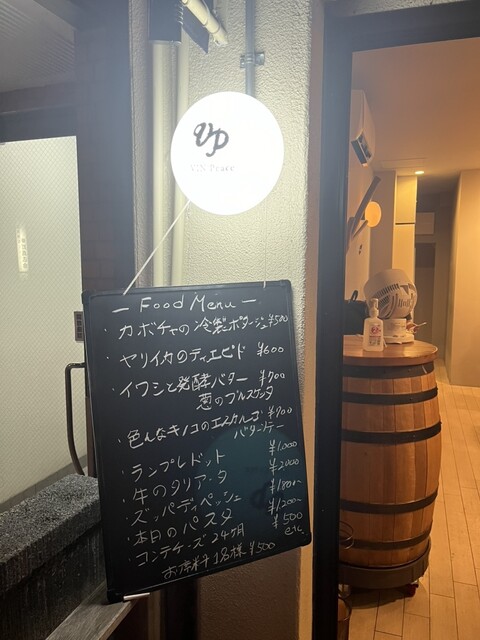 VP
VIN Peace
— Food Menu —
・カボチャの冷製ポタージュ ¥500
・ヤリイカのティエピド ¥600
・イワシと発酵バター ¥700
葱のブルスケッタ
・色んなキノコのエスカルゴ ¥700
バターソテー
・ランプレドット ¥1,000
・牛のタリアータ ¥2000
・ズッパディペッシェ ¥1800~
・本日のパスタ ¥1200~
・コンテチーズ 24ヶ月 ¥500
etc
お席料 1名様 ¥500